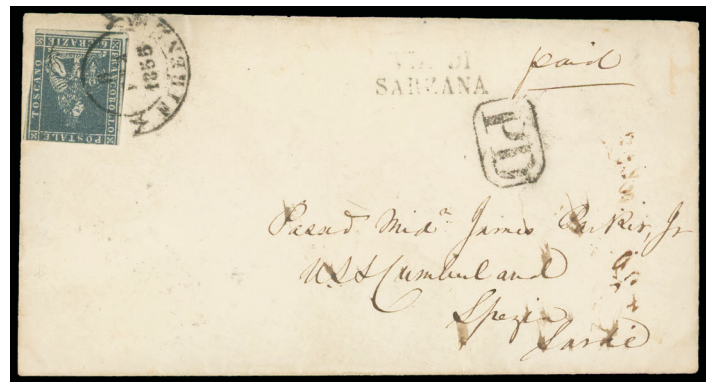 FRANCOBOLLO
POSTALE
TOSCANO
CRAZIE
FIRENZE
1855
VIA DI
SARZANA
paid
PD
Passd Midn James Parker, Jr
USS Cumberland
Spezia
Sardie